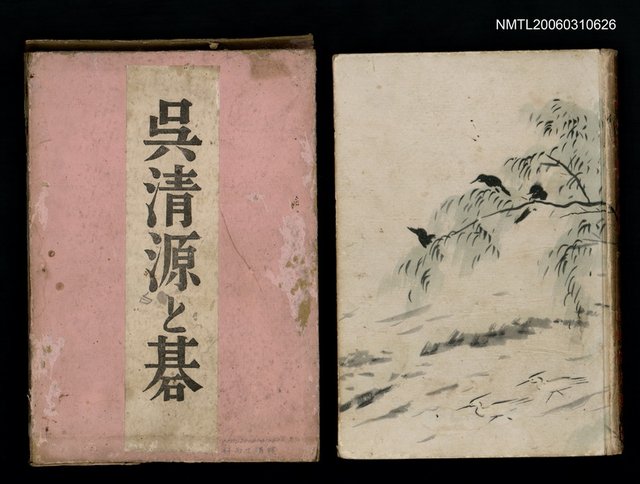 NMTL20060310626
呉清源と碁